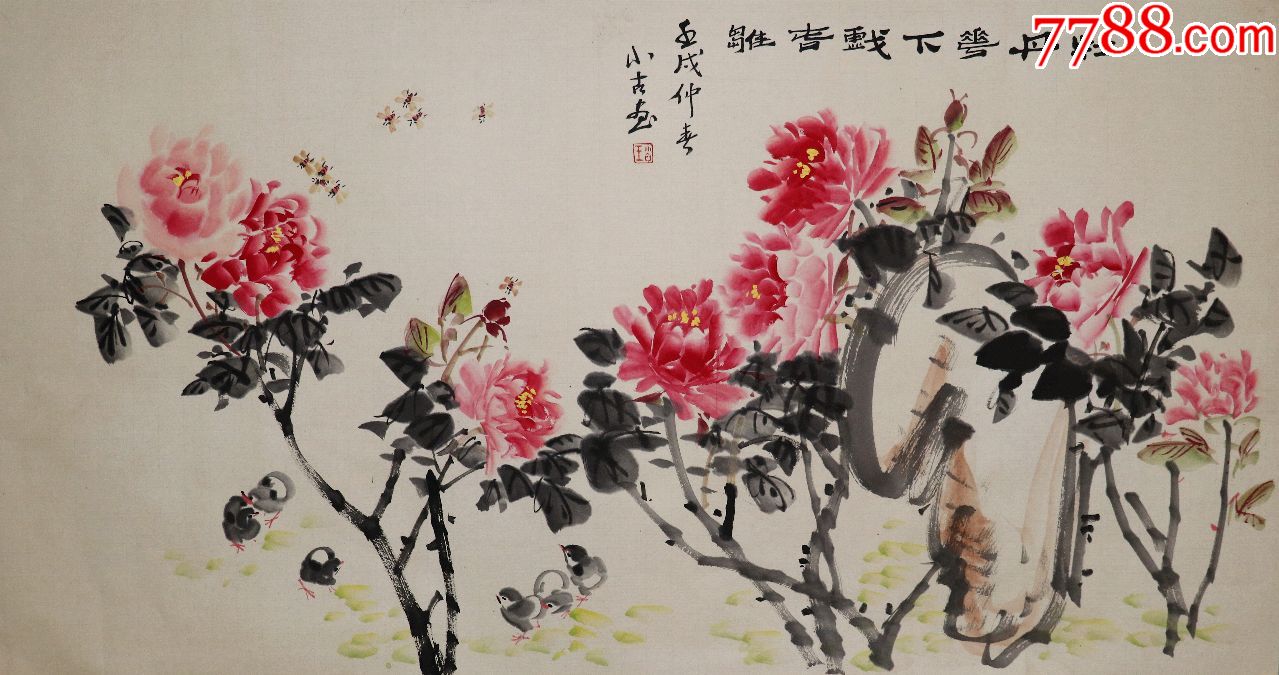 7788.com
牡丹華下戲旾雛
壬戌仲春
小古画